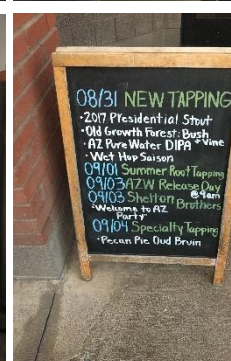 08/31 NEW TAPPING
• 2017 Presidential Stout
• Old Growth Forest: Bush
• AZ Pure Water DIPA * Vine
• Wet Hop Saison
09/01 Summer Root Tapping
09/03 AZW Release Day
@9am
09/03 Shelton Brothers
"Welcome to AZ
Party"
09/04 Specialty Tapping
• Pecan Pie Oud Bruin